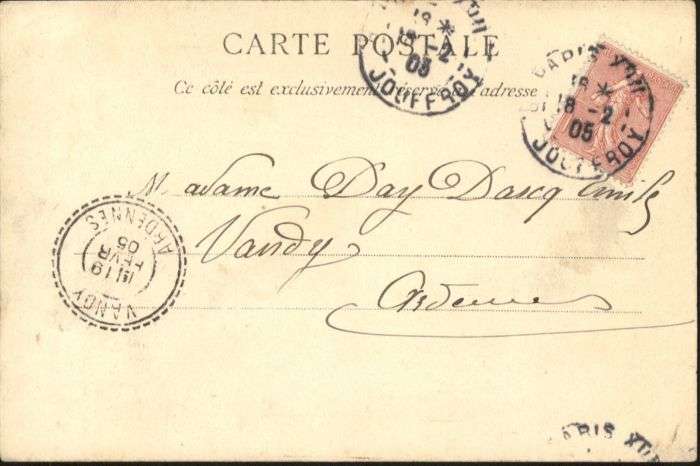 CARTE POSTALE
Ce côté est exclusivement réservé à l'adresse
PARIS XVII
18 *
18 - 2
05
JOUFFROY
18 *
18 - 2
05
JOUFFROY
Madame Day Dascq Emile
Vandy
Ardennes
VANDY
19
FEVR
05
ARDENNES
PARIS XVII